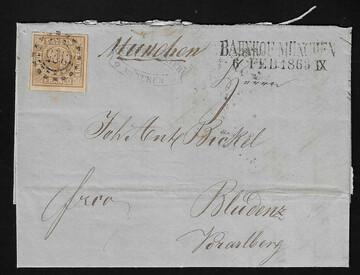 München
BAHNHOF MÜNCHEN
6 FEB 1869 IX
MÜNCHEN
Herrn
Joh. Ant. Bickel
frco
Bludenz
Vorarlberg